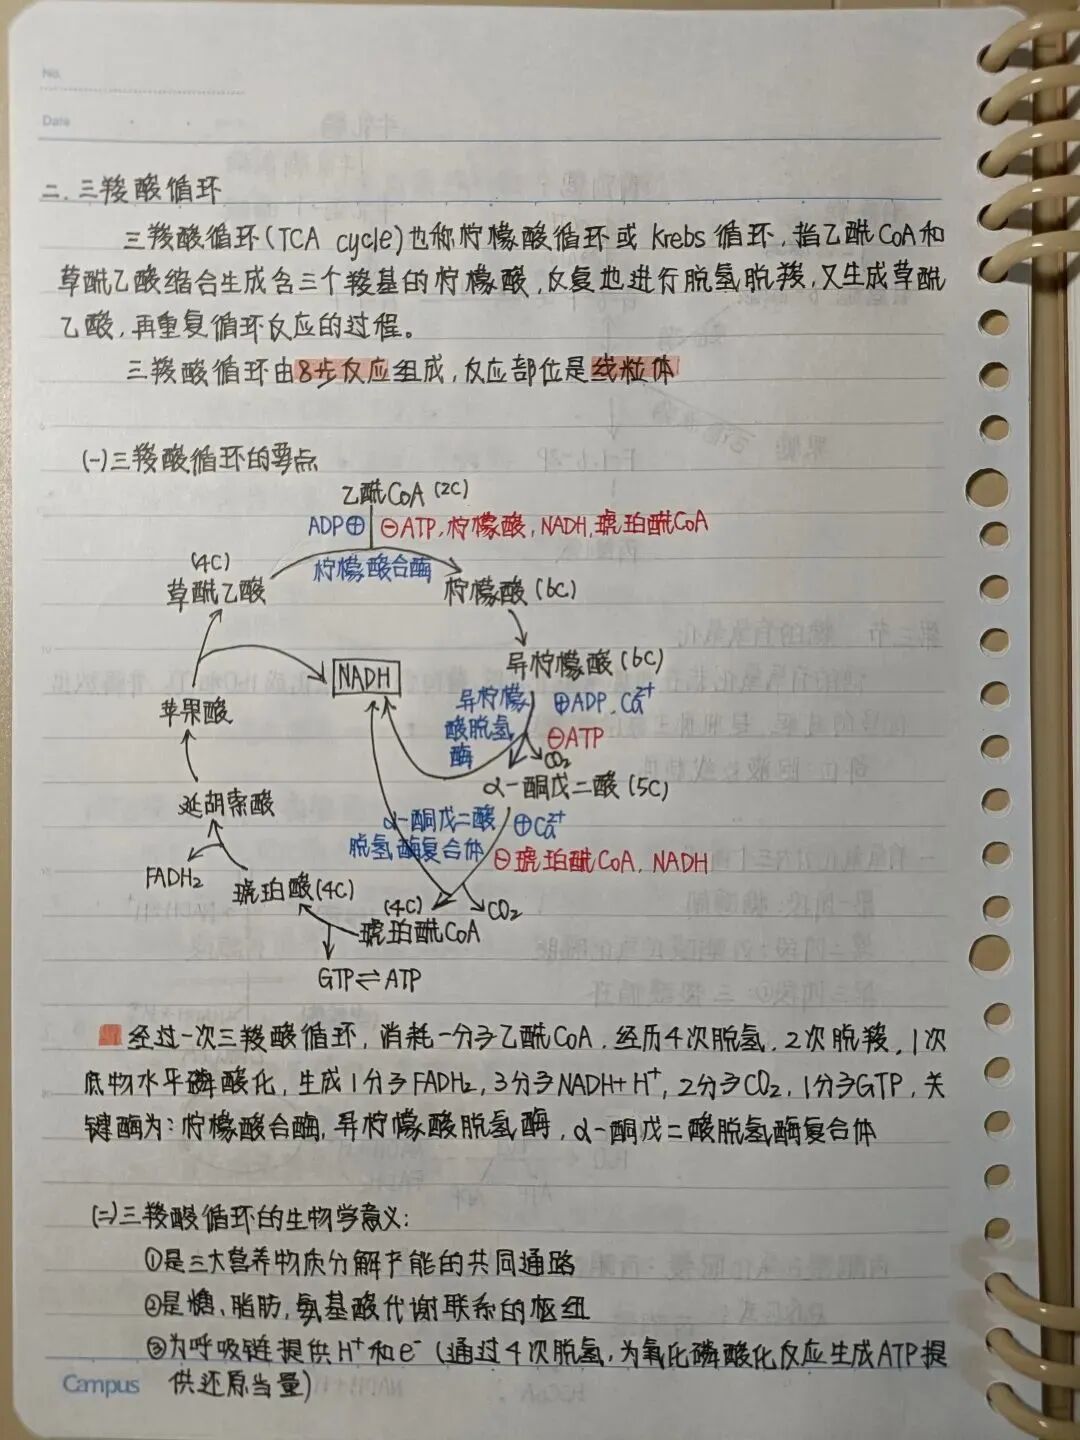 No.
Date
二. 三羧酸循环
三羧酸循环(TCA cycle)也称柠檬酸循环或 Krebs 循环, 指乙酰CoA和
草酰乙酸缩合生成含三个羧基的柠檬酸, 反复地进行脱氢脱羧, 又生成草酰
乙酸, 再重复循环反应的过程。
三羧酸循环由8步反应组成, 反应部位是线粒体
(一)三羧酸循环的要点
乙酰CoA (2C)
ADP⊕ ⊖ATP, 柠檬酸, NADH, 琥珀酰CoA
柠檬酸合酶
(4C)
草酰乙酸
柠檬酸(6C)
异柠檬酸(6C)
NADH
苹果酸
异柠檬
酸脱氢
酶
⊕ADP, Ca²⁺
⊖ATP
CO₂
α-酮戊二酸 (5C)
延胡索酸
α-酮戊二酸
脱氢酶复合体
⊕Ca²⁺
⊖琥珀酰CoA, NADH
FADH₂
琥珀酸(4C)
(4C)
琥珀酰CoA
CO₂
GTP⇌ATP
经过一次三羧酸循环, 消耗一分子乙酰CoA, 经历4次脱氢, 2次脱羧, 1次
底物水平磷酸化, 生成1分子FADH₂, 3分子NADH+H⁺, 2分子CO₂, 1分子GTP, 关
键酶为: 柠檬酸合酶, 异柠檬酸脱氢酶, α-酮戊二酸脱氢酶复合体
(二)三羧酸循环的生物学意义:
①是三大营养物质分解产能的共同通路
②是糖、脂肪, 氨基酸代谢联系的枢纽
③为呼吸链提供H⁺和e⁻ (通过4次脱氢, 为氧化磷酸化反应生成ATP提
供还原当量)
Campus